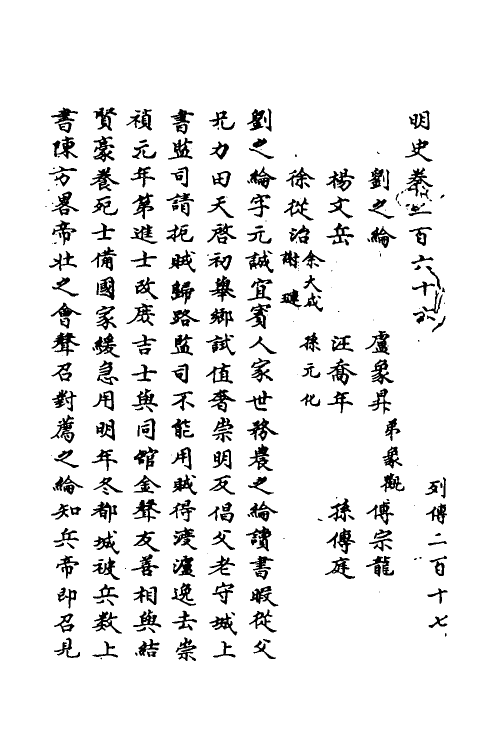 明史卷三百六十六　列傳二百十七
劉之綸　盧象昇　弟象觀　傅宗龍
楊文岳　汪喬年　孫傳庭
徐從治　謝璉　余大成　孫元化
劉之綸字元誠宜賓人家世務農之綸讀書暇從父
兄力田天啓初舉鄉試值奢崇明反倡父老守城上
書監司請扼賊歸路監司不能用賊得渡瀘逸去崇
禎元年第進士改庶吉士與同館金聲友善相與結
賢豪養死士備國家緩急用明年冬都城被兵數上
書陳方畧帝壯之會聲召對薦之綸知兵帝即召見